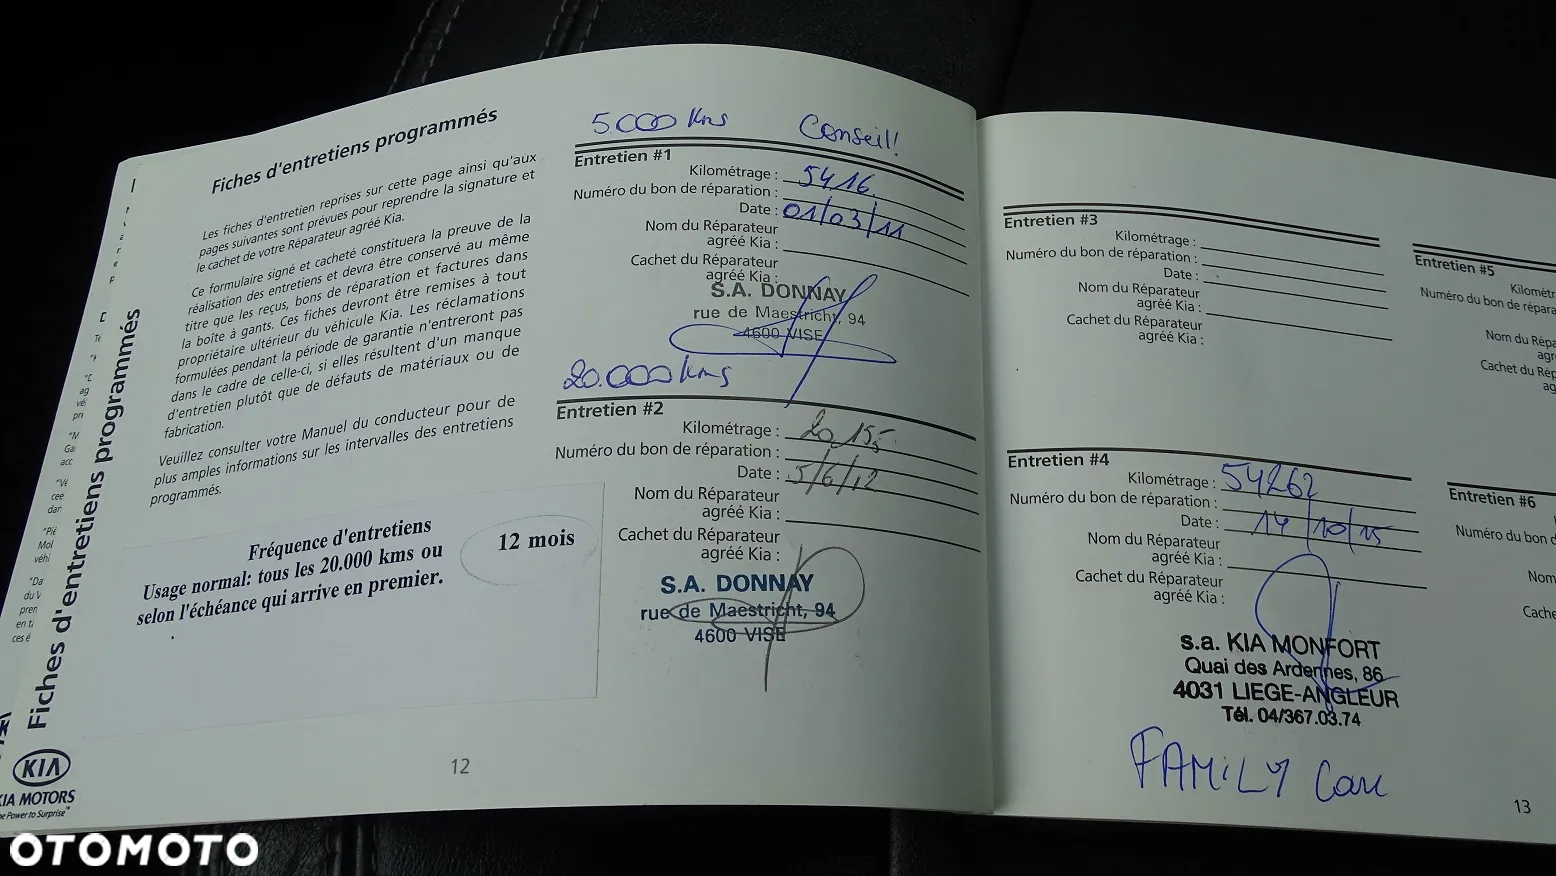 Fiches d'entretiens programmés
Les fiches d'entretien reprises sur cette page ainsi qu'aux
pages suivantes sont prévues pour reprendre la signature et
le cachet de votre Réparateur agréé Kia.
Ce formulaire signé et cacheté constituera la preuve de la
réalisation des entretiens et devra être conservé au même
titre que les reçus, bons de réparation et factures dans
la boîte à gants. Ces fiches devront être remises à tout
propriétaire ultérieur du véhicule Kia. Les réclamations
formulées pendant la période de garantie n'entreront pas
dans le cadre de celle-ci, si elles résultent d'un manque
d'entretien plutôt que de défauts de matériaux ou de
fabrication.
Veuillez consulter votre Manuel du conducteur pour de
plus amples informations sur les intervalles des entretiens
programmés.
Fréquence d'entretiens
Usage normal: tous les 20.000 kms ou
selon l'échéance qui arrive en premier.
12 mois
Fiches d'entretiens programmés
KIA
KIA MOTORS
The Power to Surprise™
12
5000 Kms Conseil!
Entretien #1
Kilométrage : 5416
Numéro du bon de réparation :
Date : 01/03/11
Nom du Réparateur
agréé Kia :
Cachet du Réparateur
agréé Kia :
S.A. DONNAY
rue de Maestricht, 94
4600 VISE
20.000 Kms
Entretien #2
Kilométrage : 20155
Numéro du bon de réparation :
Date : 5/6/12
Nom du Réparateur
agréé Kia :
Cachet du Réparateur
agréé Kia :
S.A. DONNAY
rue de Maestricht, 94
4600 VISE
Entretien #3
Kilométrage :
Numéro du bon de réparation :
Date :
Nom du Réparateur
agréé Kia :
Cachet du Réparateur
agréé Kia :
Entretien #4
Kilométrage : 54262
Numéro du bon de réparation :
Date : 14/10/15
Nom du Réparateur
agréé Kia :
Cachet du Réparateur
agréé Kia :
s.a. KIA MONFORT
Quai des Ardennes, 86
4031 LIEGE-ANGLEUR
Tél. 04/367.03.74
FAMILY Care
Entretien #5
Kilométr
Numéro du bon de répara
Nom du Répa
agr
Cachet du Rép
ag
Entretien #6
Numéro du bon d
Nom
Cache
13
OTOMOTO